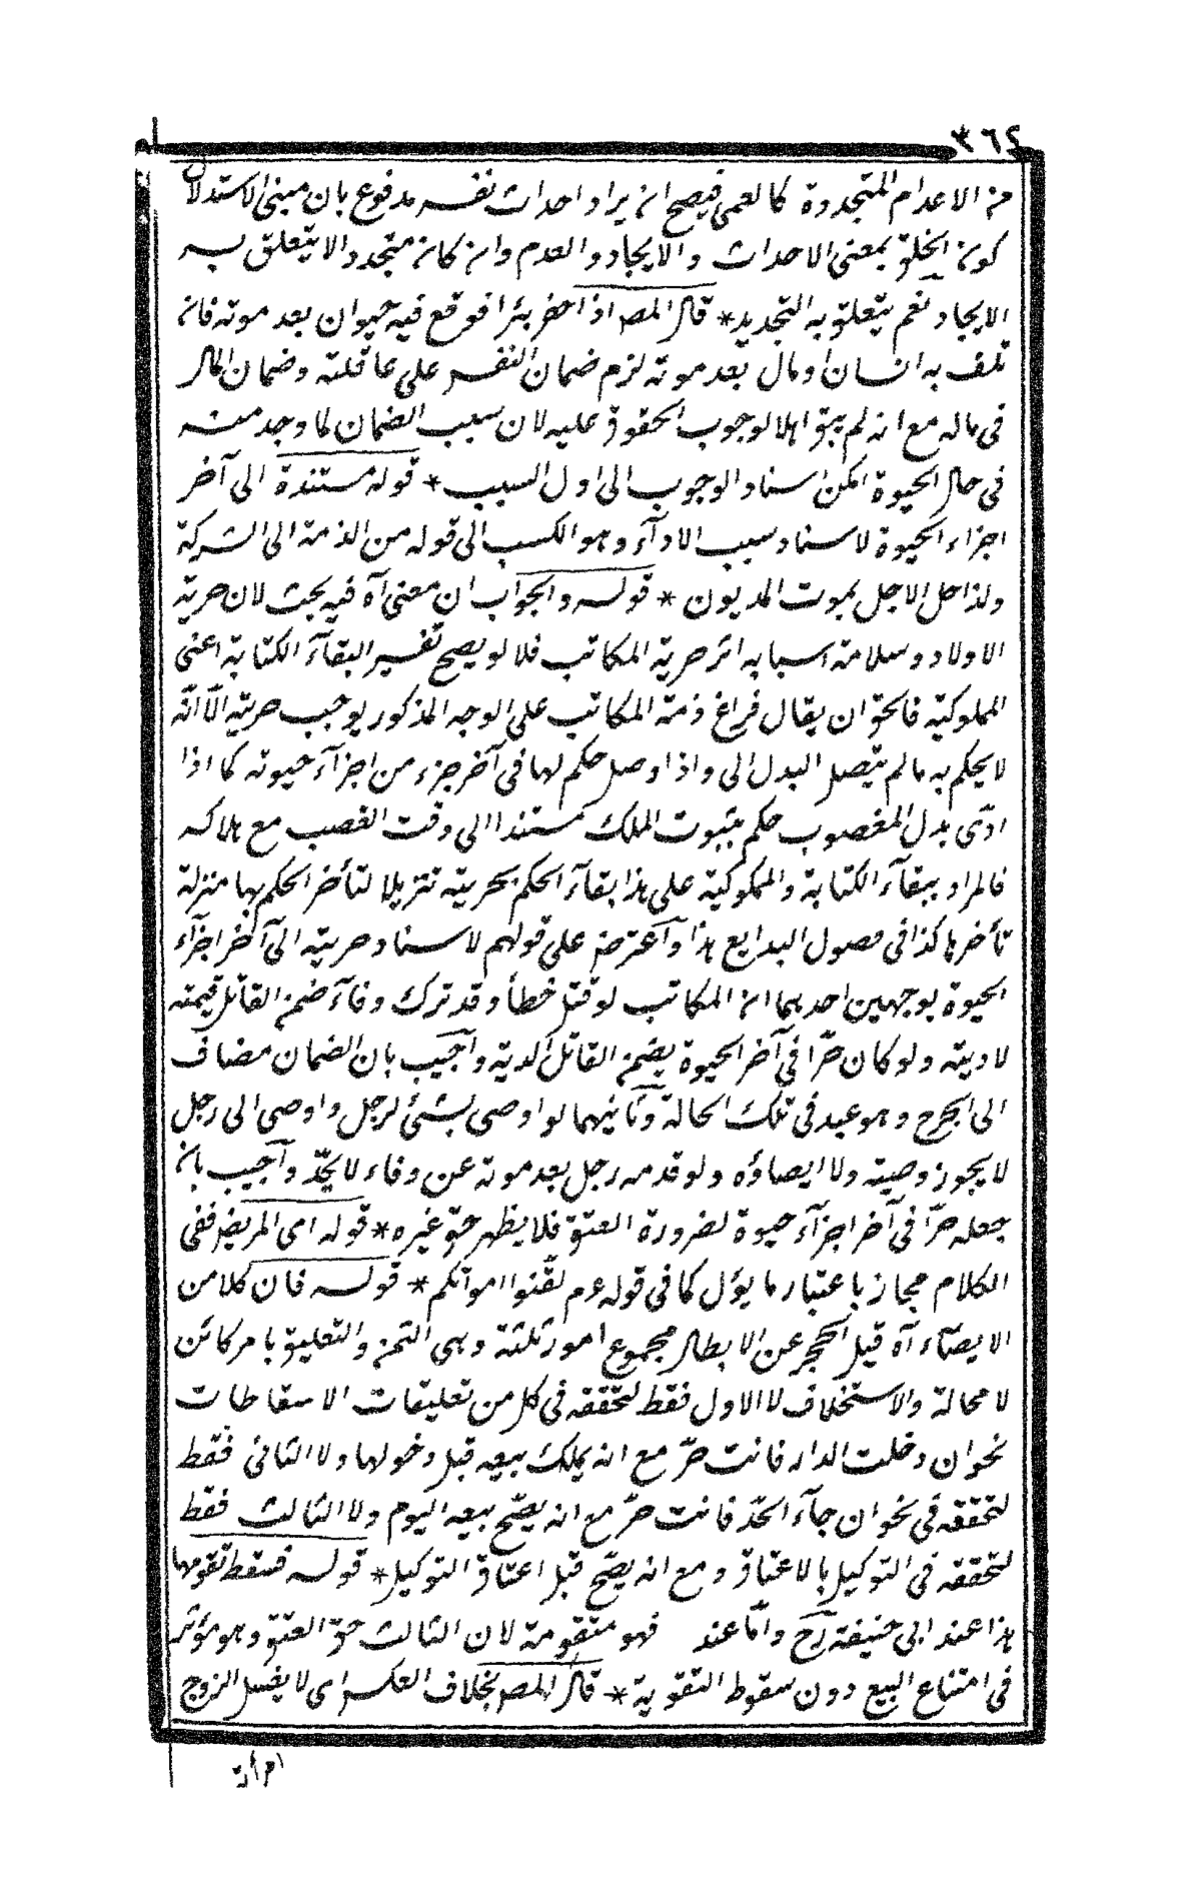 ٣٦٤
من الاعدام المتجددة كالعمى فيصح ان يراد احداث نفسه مدفوع بان مبنى الاستدلال
كون الخلق بمعنى الاحداث والايجاد والعدم وان كان متجددا لا يتعلق به
الايجاد نعم يتعلق به التجديد * قال المص اذا حفر بئرا فوقع فيه حيوان بعد موته فانه
تلف به انسان او مال بعد موته لزم ضمان النفس على عاقلته وضمان المال
فى ماله مع انه لم يبق اهلا لوجوب الحقوق عليه لان سبب الضمان لما وجد منه
فى حال الحيوة امكن اسناد الوجوب الى اول السبب * قوله مستندة الى آخر
اجزاء الحيوة لاسناد سبب الاداء وهو الكسب الى قوله من الذمة الى الشركة
ولذا حل الاجل بموت المديون * قوله والجواب ان معنى آه فيه بحث لان حرية
الاولاد وسلامة اسبابه اثر حرية المكاتب فلا لو يصح تفسير البقاء الكتابة اعنى
المملوكية فالحق ان يقال فراغ ذمة المكاتب على الوجه المذكور يوجب حريته الا انه
لا يحكم به مالم يتصل البدل الى واذا وصل حكم لها فى آخر جزء من اجزاء حيوته كما اذا
ادى بدل المغصوب حكم بثبوت الملك مستندا الى وقت الغصب مع هلاكه
فالمراد ببقاء الكتابة والمملوكية على هذا بقاء الحكم بحريته تنزيلا لتأخر الحكم بها منزلة
تأخرها كذا فى فصول البدايع هذا واعترض على قولهم لاسناد حريته الى آخر اجزاء
الحيوة بوجهين احدهما ان المكاتب لو قتل خطأ وقد ترك وفاء ضمن القاتل قيمته
لا ديته ولو كان حرا فى آخر الحيوة يضمن القاتل الدية واجيب بان الضمان مضاف
الى الجرح وهو عبد فى تلك الحالة وثانيهما لو اوصى بشئ لرجل واوصى الى رجل
لا يجوز وصيته ولا ايصاؤه ولو قذفه رجل بعد موته عن وفاء لا يحد واجيب بانه
جعله حرا فى آخر اجزاء حيوة لضرورة العتق فلا يظهر حق غيره * قوله اى المريض ففى
الكلام مجاز باعتبار ما يؤل كما فى قوله عم لقنوا امواتكم * قوله فان كلا من
الايصاء آه قيل الحجر عن الابطال مجموع امور ثلثة وهى التمن والتعليق بامر كائن
لا محالة والاستخلاف لا الاول فقط لتحققه فى كل من تعليقات الاسقاطات
نحو ان دخلت الدار فانت حر مع انه يملك بيعه قبل دخولها ولا الثانى فقط
لتحققه فى نحو ان جاء الغد فانت حر مع انه يصح بيعه اليوم ولا الثالث فقط
لتحققه فى التوكيل بالاعتاق ومع انه يصح قبل اعتاق التوكيل * قوله فسقط تقومها
هذا عند ابى حنيفة رح واما عند فهو متقومة لان الثالث حق العتق وهو مؤثر
فى امتناع البيع دون سقوط التقوية * قال المص بخلاف العكس اى لا يغسل الزوج
امرأته